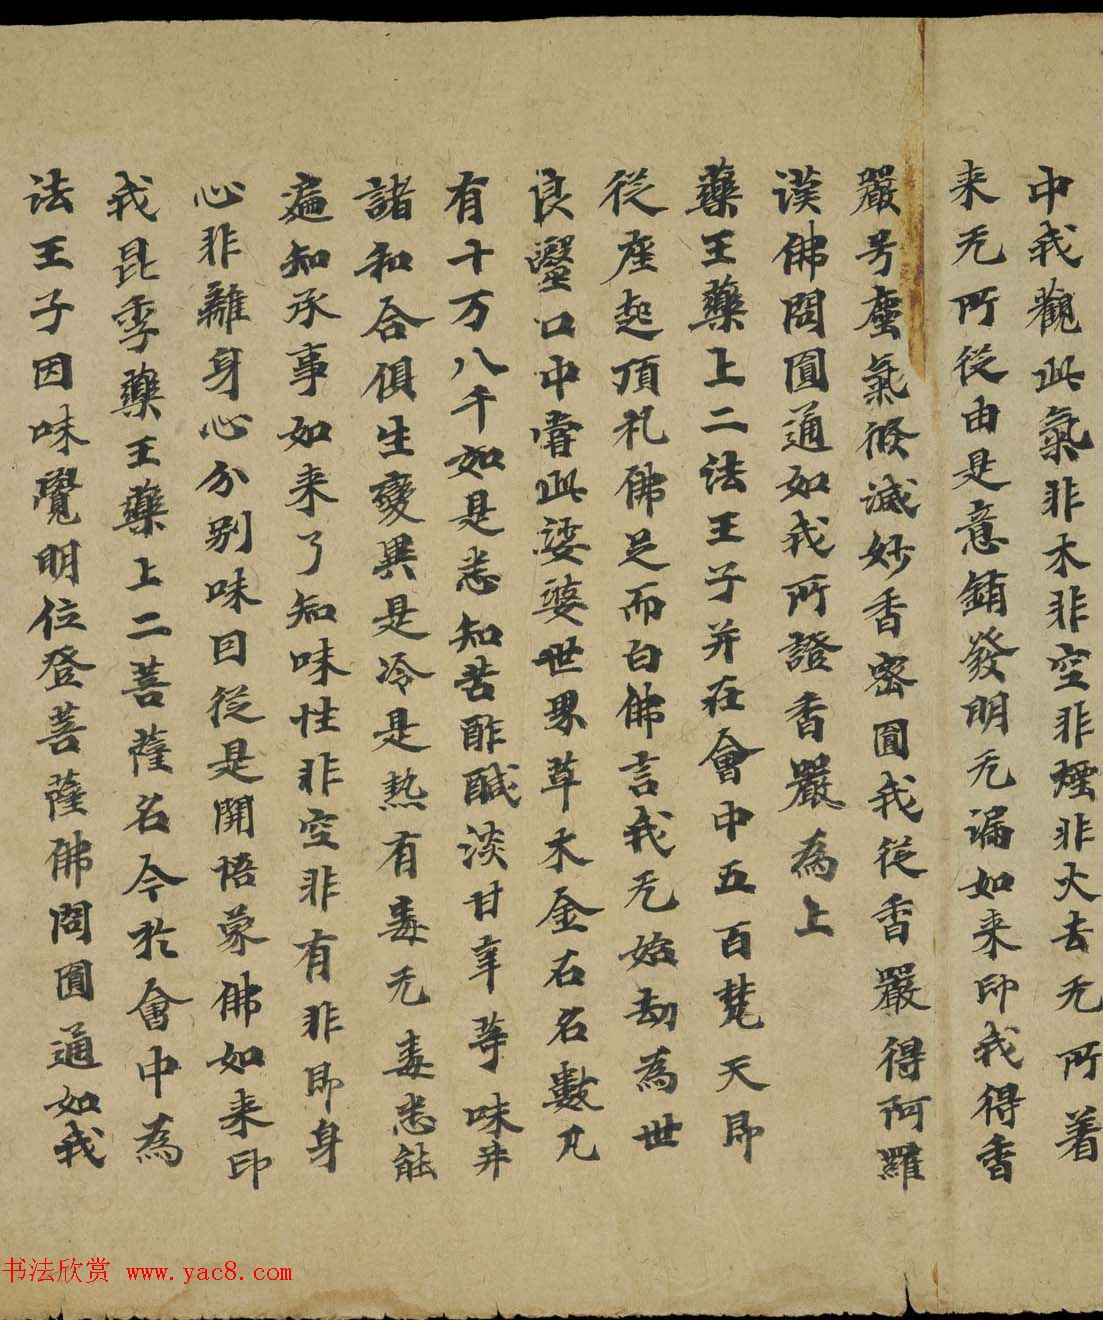 中我觀此氣非木非空非煙非火去无所着
来无所從由是意銷發明无漏如来印我得香
嚴号塵氣倏滅妙香密圓我從香嚴得阿羅
漢佛問圓通如我所證香嚴為上
藥王藥上二法王子并在會中五百梵天即
從座起頂礼佛足而白佛言我无始劫為世
良毉口中嘗此娑婆世界草木金石名數凡
有十万八千如是悉知苦酢醎淡甘辛等味并
諸和合俱生變異是冷是热有毒无毒悉能
遍知承事如来了知味性非空非有非即身
心非離身心分别味因從是開悟蒙佛如来印
我昆季藥王藥上二菩薩名今於會中為
法王子因味覺明位登菩薩佛問圓通如我
书法欣赏 www.yac8.com